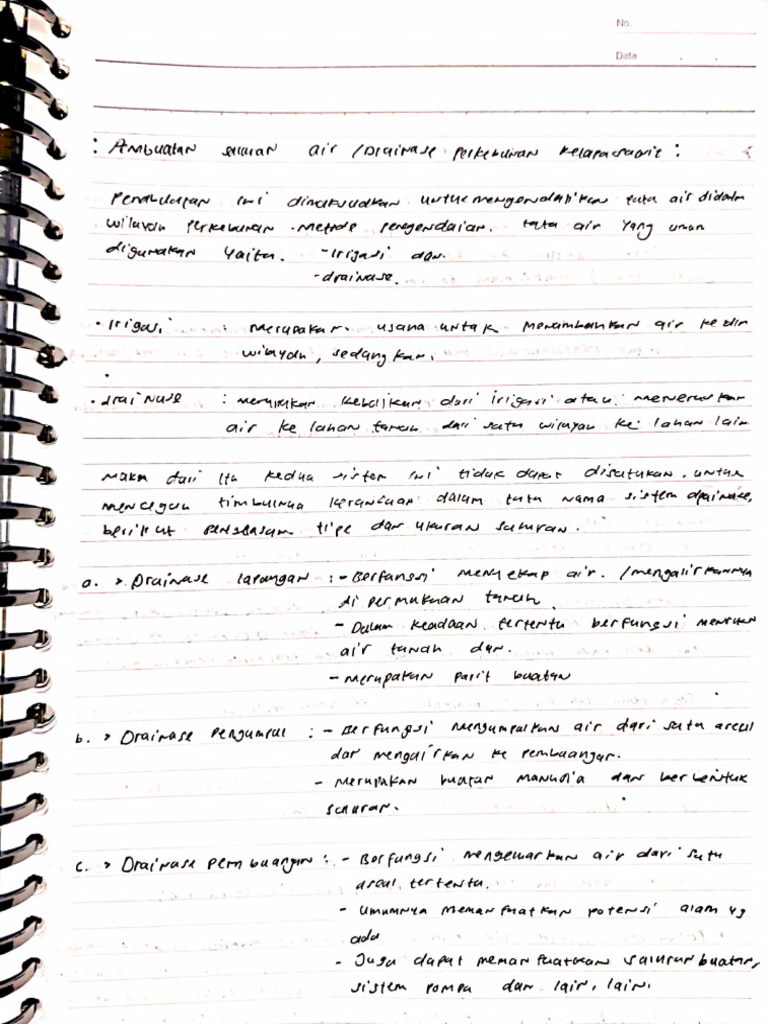 No.
Date
: Pembuatan saluran air / Drainase perkebunan kelapa sawit :
Pembuatan ini dimaksudkan untuk mengendalikan tata air didalam
wilayah perkebunan. metode pengendalian. tata air yang umum
digunakan yaitu. - Irigasi dan.
- drainase.
• Irigasi : merupakan. usaha untuk menambahkan air kedlm
wilayah, sedangkan.
• drainase : merupakan kebalikan dari irigasi atau meneruskan
air ke lahan tanah dari satu wilayah ke lahan lain
maka dari itu kedua sistem ini tidak dapat disatukan. untuk
mencegah timbulnya kerancuan dalam tata nama sistem drainase,
berikut tipe dan ukuran saluran.
a. > Drainase lapangan : - Berfungsi menyekap air. /mengalirkannya
di permukaan tanah
- Dalam keadaan tertentu berfungsi menurun
air tanah dan.
- merupakan parit buatan
b. > Drainase Pengumpul : - Berfungsi mengumpulkan air dari satu areal
dan mengalirkan ke pembuangan.
- merupakan buatan manusia dan berbentuk
saluran.
c. > Drainase pembuangan : - Berfungsi mengeluarkan air dari satu
areal tertentu.
- umumnya memanfaatkan potensi alam yg
ada
- Juga dapat memanfaatkan saluran buatan,
sistem pompa dan lain, lain.